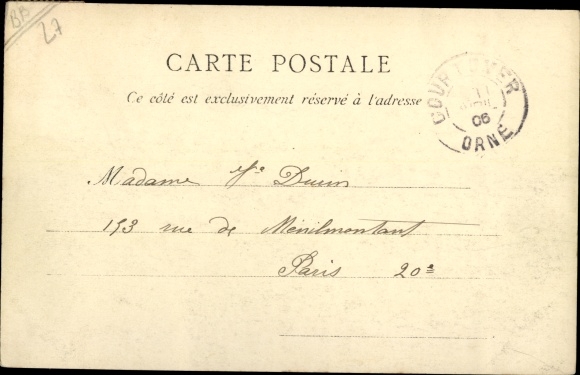 BB
27
CARTE POSTALE
Ce côté est exclusivement réservé à l'adresse
COURTOMER
11
06
ORNE
Madame Ve
193 rue de Ménilmontant
Paris 20e